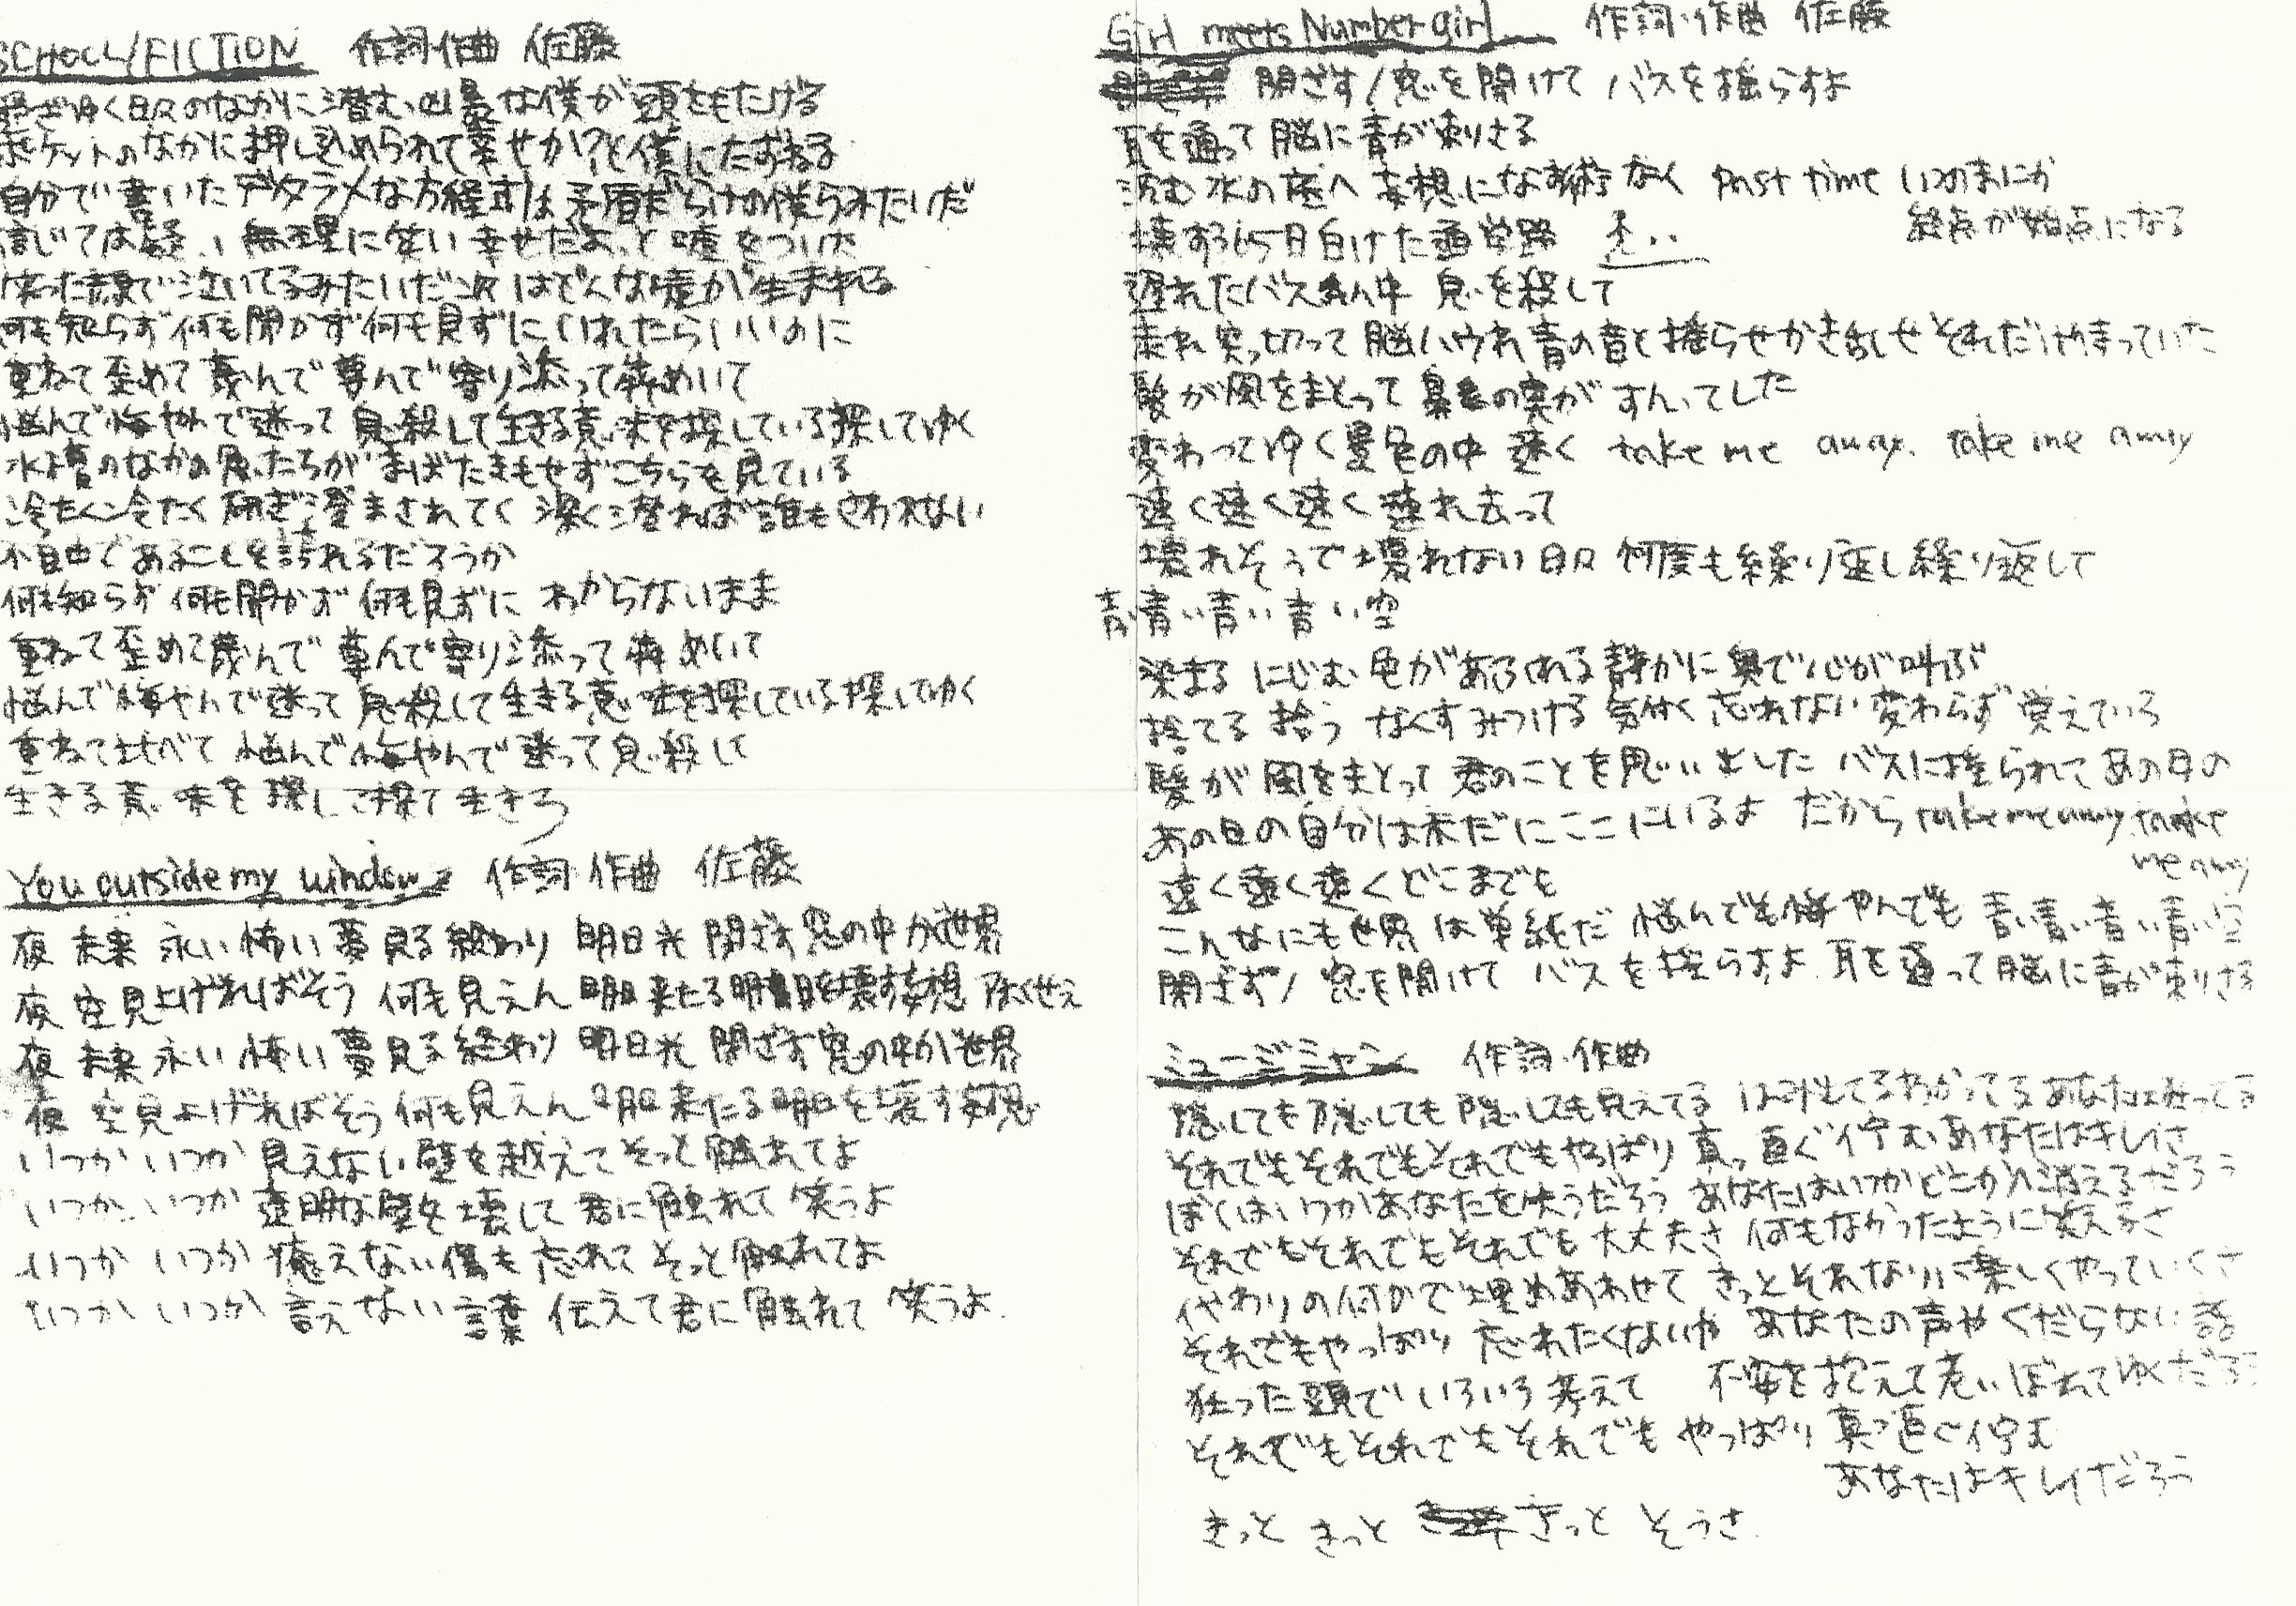 SCHOOL/FICTION 作詞作曲 佐藤
過ぎゆく日々のなかに潜む凶暴な僕が頭をもたげる
ポケットのなかに押し込められて幸せか?と僕にたずねる
自分で書いたデタラメな方程式は矛盾だらけの僕らみたいだ
信じては疑い無理に笑い幸せだよ、と嘘をついた
笑った顔で泣いてるみたいだ次はどんな嘘が生まれる
何も知らず何も聞かず何も見ずにいれたらいいのに
重ねて歪めて蔑んで尊んで寄り添って犇めいて
悩んで悔やんで迷って息殺して生きる意味を探している探してゆく
水槽のなかの魚たちがまばたきもせずこちらを見ている
冷たく冷たく研ぎ澄まされてく深く潜れば誰もさわれない
不自由であることを誇れるだろうか
何も知らず何も聞かず何も見ずに わからないまま
重ねて歪めて蔑んで尊んで寄り添って犇めいて
悩んで悔やんで迷って息殺して生きる意味を探している探してゆく
重ねて比べて悩んで悔やんで迷って息殺して
生きる意味を探して探て生きろ
You outside my window 作詞 作曲 佐藤
夜 未来 永い 怖い 夢 見る 終わり 明日光 閉ざす窓の中が世界
夜 空見上げればそう 何も見えん 明日来たる明日を壊す妄想
夜 未来 永い 怖い 夢 見る 終わり 明日光 閉ざす窓の中が世界
夜 空見上げればそう 何も見えん 明日来たる明日を壊す妄想
いつか いつか 見えない壁を越えてそっと触れてよ
いつか いつか 透明な壁を壊して君に触れて笑うよ
いつか いつか 癒えない傷も忘れてそっと触れてよ
いつか いつか 言えない言葉 伝えて君に触れて 笑うよ
Girl meets Number girl 作詞・作曲 佐藤
閉ざす/窓を開けて バスを揺らすよ
耳を通って 脳に青が刺さる
沈む水の底へ 妄想になす術なく past time いつのまにか
終点が始点になる
壊する 白けた通学路
遅れたバスん中 息を殺して
走れ 突っ切って 脳ハウれ 青の音と揺らせかき乱せそれだけ待っていた
髪が風をまとって 臭の奥がすんってした
変わってゆく景色の中 速く take me away. take me away
速く速く速く 連れ去って
壊れそうで壊れない日々 何度も繰り返し繰り返して
青い青い青い青い空
染まる にじむ 色があふれる 静かに奥で心が叫ぶ
捨てる 拾う なくす みつける 気付く 忘れない 変わらず覚えている
髪が風をまとって 君のことを思い出した バスに揺られてあの日の
あの日の自分は未だにここにいるよ だから take me away take
me away
遠く遠く遠くどこまでも
こんなにも世界は単純だ 悩んでも悔やんでも 青い青い青い青い空
閉ざす/窓を開けて バスを揺らすよ 耳を通って脳に青が刺さる
ミュージシャン 作詞・作曲
隠しても隠しても隠しても見えてる はみ出てるわかってる あなたは
それでもそれでもそれでもやっぱり真っ直ぐ佇むあなたはキレイさ
ぼくはいつかあなたを失うだろう あなたはいつかどこかへ消えるだろう
それでもそれでもそれでも大丈夫さ 何もなかったように笑えるさ
代わりの何かで埋めあわせて きっとそれなりに楽しくやっていくさ
それでもやっぱり 忘れたくないな あなたの声やくだらない話
狂った頭でいろいろ考えて 不安を抱えて老いぼれてゆくだろう
それでもそれでもそれでも やっぱり真っ直ぐ佇む
あなたはキレイだろう
きっと きっと きっと そうさ